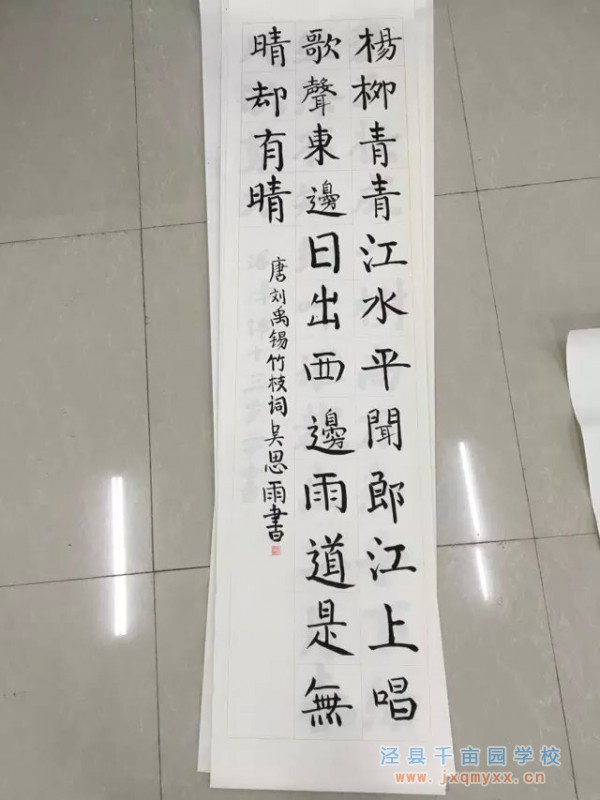 杨柳青青江水平聞郎江上唱
歌聲東邊日出西邊雨道是無
晴却有晴
唐刘禹锡竹枝词吴思雨書
泾县千亩园学校
www.jxqmyxx.cn